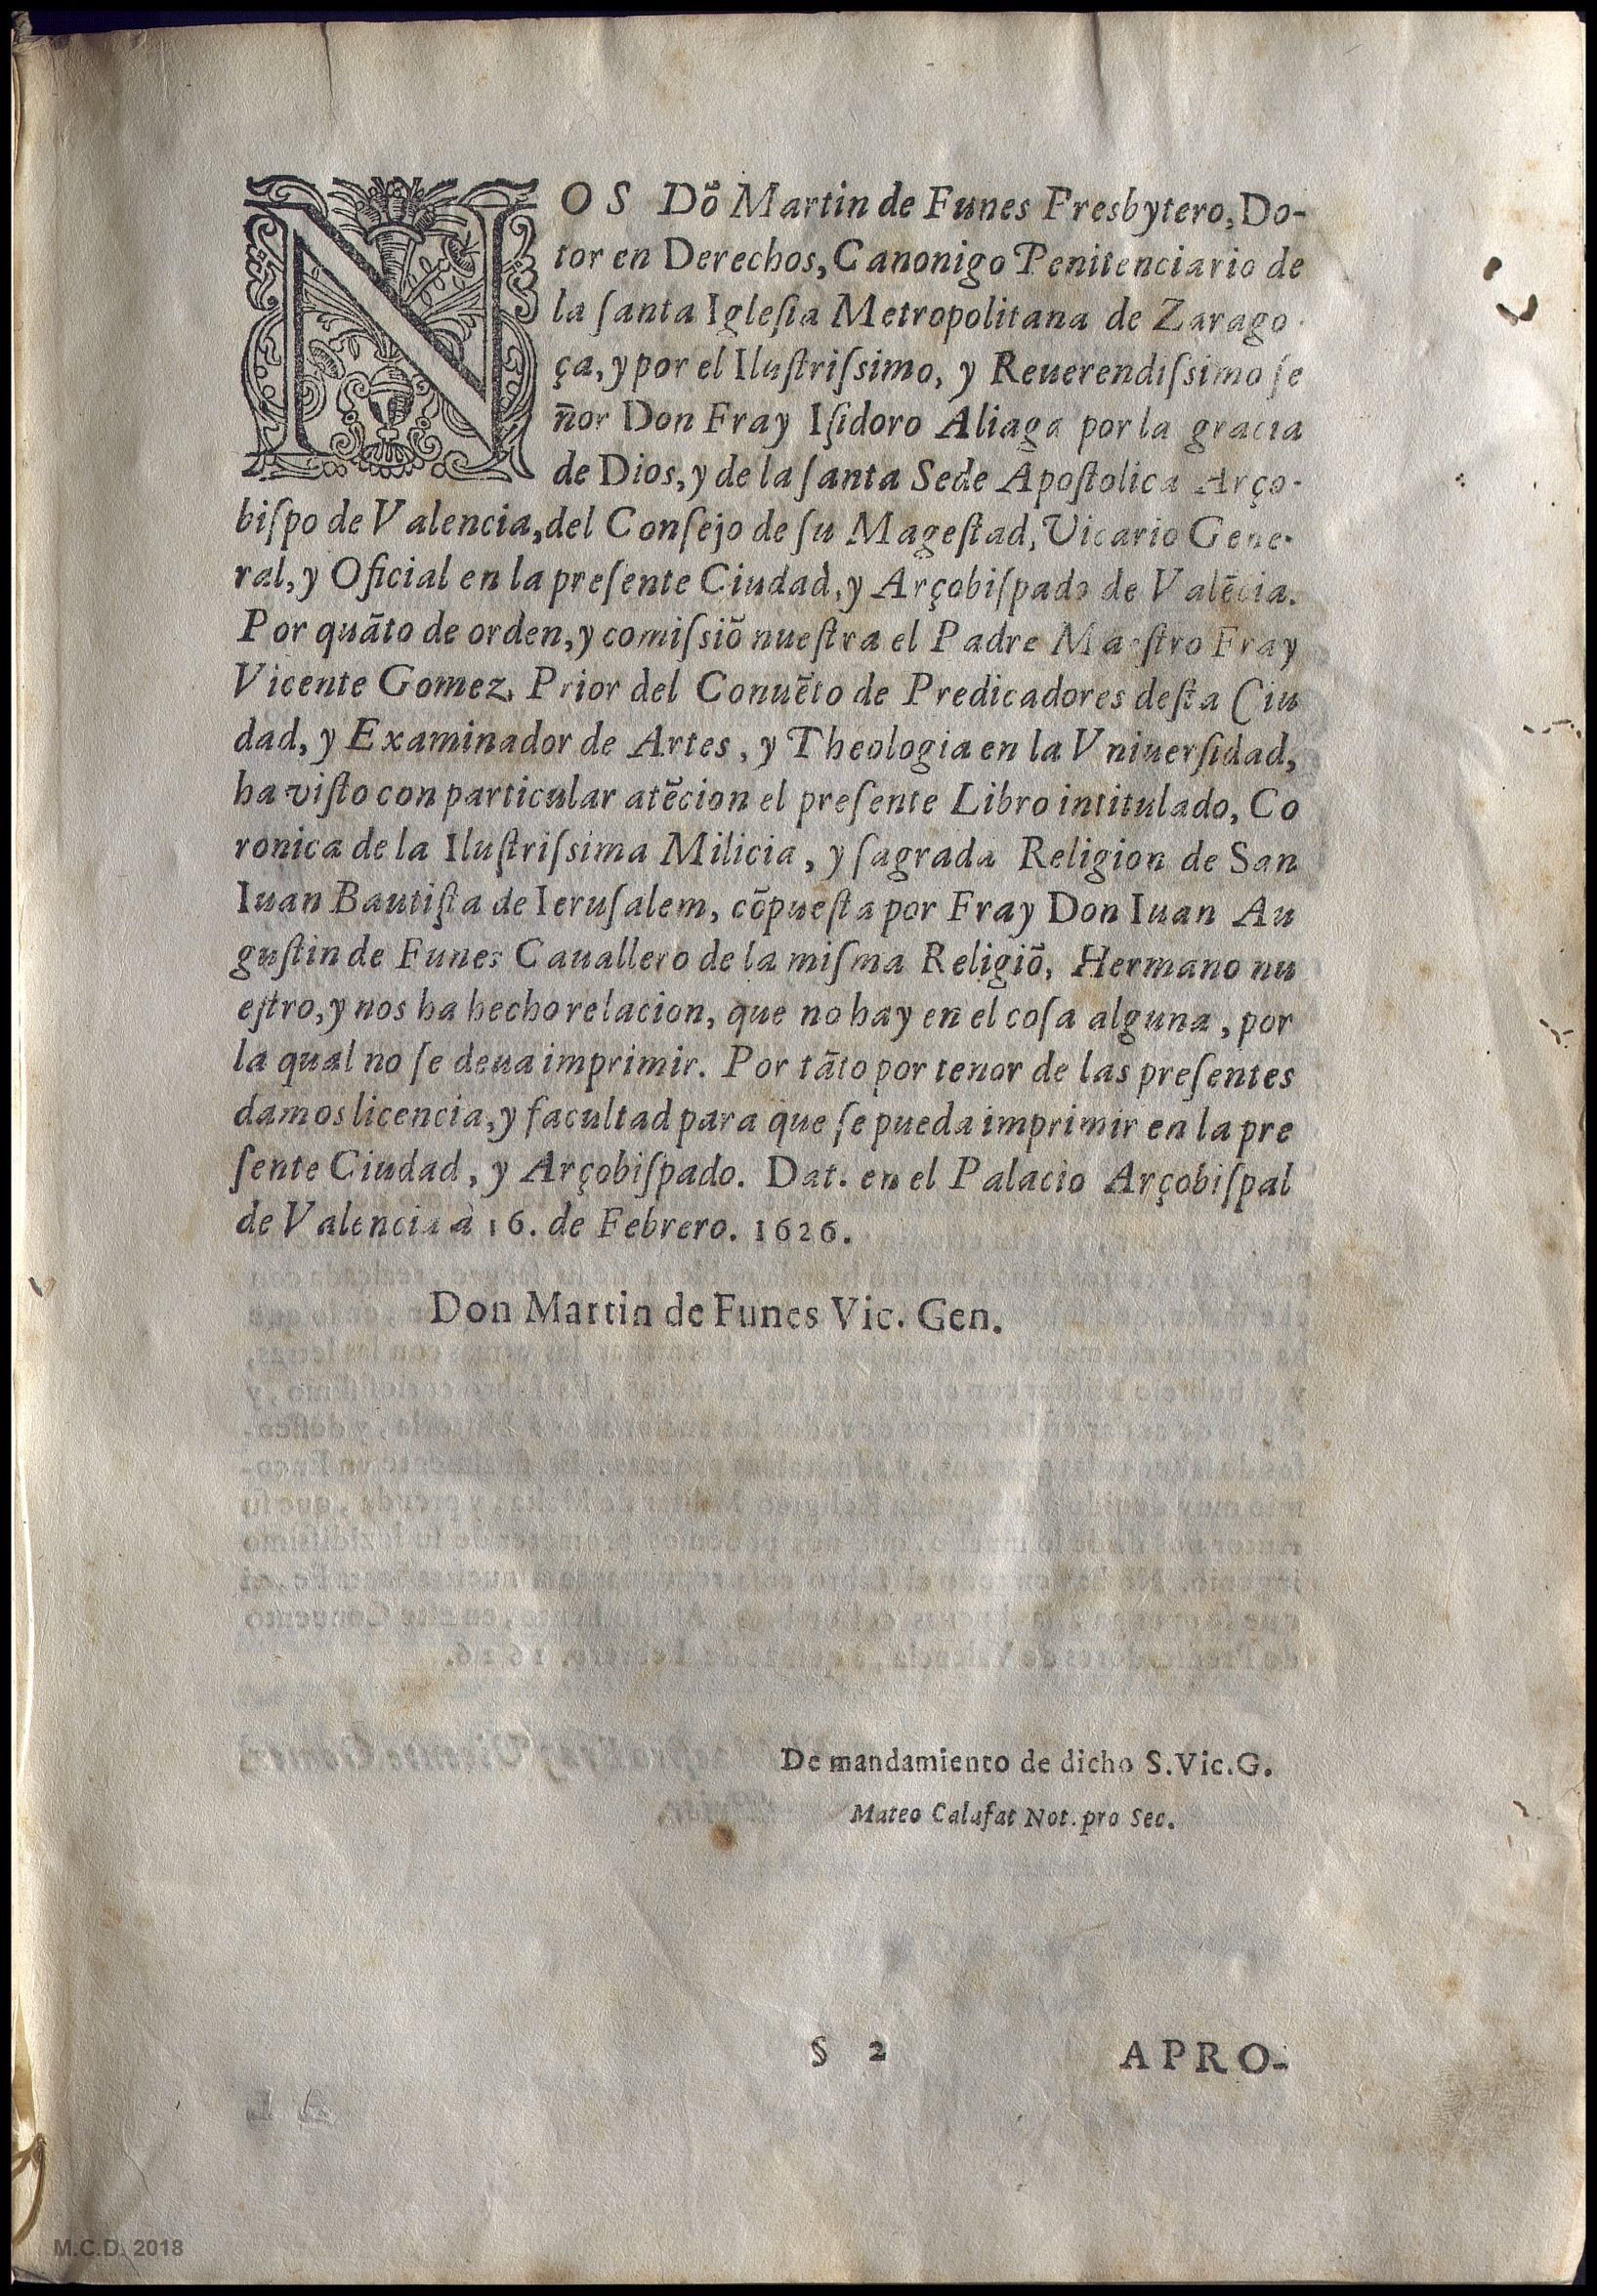 NOS Dõ Martin de Funes Presbytero, Do-
tor en Derechos, Canonigo Penitenciario de
la ſanta Igleſia Metropolitana de Zarago-
ça, y por el Iluſtriſsimo, y Reuerendiſsimo ſe
ñor Don Fray Iſidoro Aliaga por la gracia
de Dios, y de la ſanta Sede Apoſtolica Arço-
biſpo de Valencia, del Conſejo de ſu Mageſtad, Vicario Gene-
ral, y Oficial en la preſente Ciudad, y Arçobiſpado de Valẽcia.
Por quãto de orden, y comiſsiõ nueſtra el Padre Maeſtro Fray
Vicente Gomez, Prior del Conuẽto de Predicadores deſta Ciu
dad, y Examinador de Artes, y Theologia en la Vniuerſidad,
ha viſto con particular atẽcion el preſente Libro intitulado, Co
ronica de la Iluſtriſsima Milicia, y ſagrada Religion de San
Iuan Bautiſta de Ieruſalem, cõpueſta por Fray Don Iuan Au
guſtin de Funes Cauallero de la miſma Religiõ, Hermano nu
eſtro, y nos ha hecho relacion, que no hay en el coſa alguna, por
la qual no ſe deua imprimir. Por tãto por tenor de las preſentes
damos licencia, y facultad para que ſe pueda imprimir en la pre
ſente Ciudad, y Arçobiſpado. Dat. en el Palacio Arçobiſpal
de Valencia à 16. de Febrero. 1626.
Don Martin de Funes Vic. Gen.
De mandamiento de dicho S. Vic. G.
Mateo Calafat Not. pro Sec.
§ 2 APRO-
M.C.D. 2018